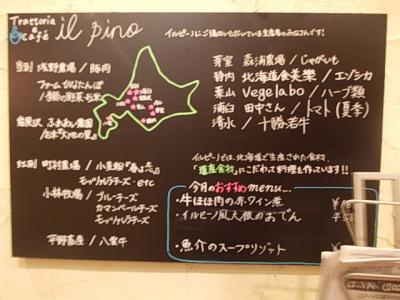 Trattoria
& Café il pino
イルピーノにご協力いただいている生産者のみなさんです!
当別 浅野農場/豚肉
ファームかりたんぽ
/季節の野菜・お米
ふれあい農園
江別 町村農場/小麦粉『春よ恋』
モッツァレラチーズ・etc
小林牧場/ブルーチーズ
カマンベールチーズ
モッツァレラチーズ
平野畜産/八雲牛
芽室 森浦農場/じゃがいも
静内 北海道食美樂/エゾシカ
栗山 Vegelabo/ハーブ類
浦臼 田中さん/トマト(夏季)
清水/十勝若牛
イルピーノでは、北海道で生産された食材、
「道産食材」にこだわって料理を作っています!!
今月のおすすめmenu...
・牛ほほ肉の赤ワイン煮 ¥
・イルピーノ風大根のおでん ¥
・魚介のスープリゾット